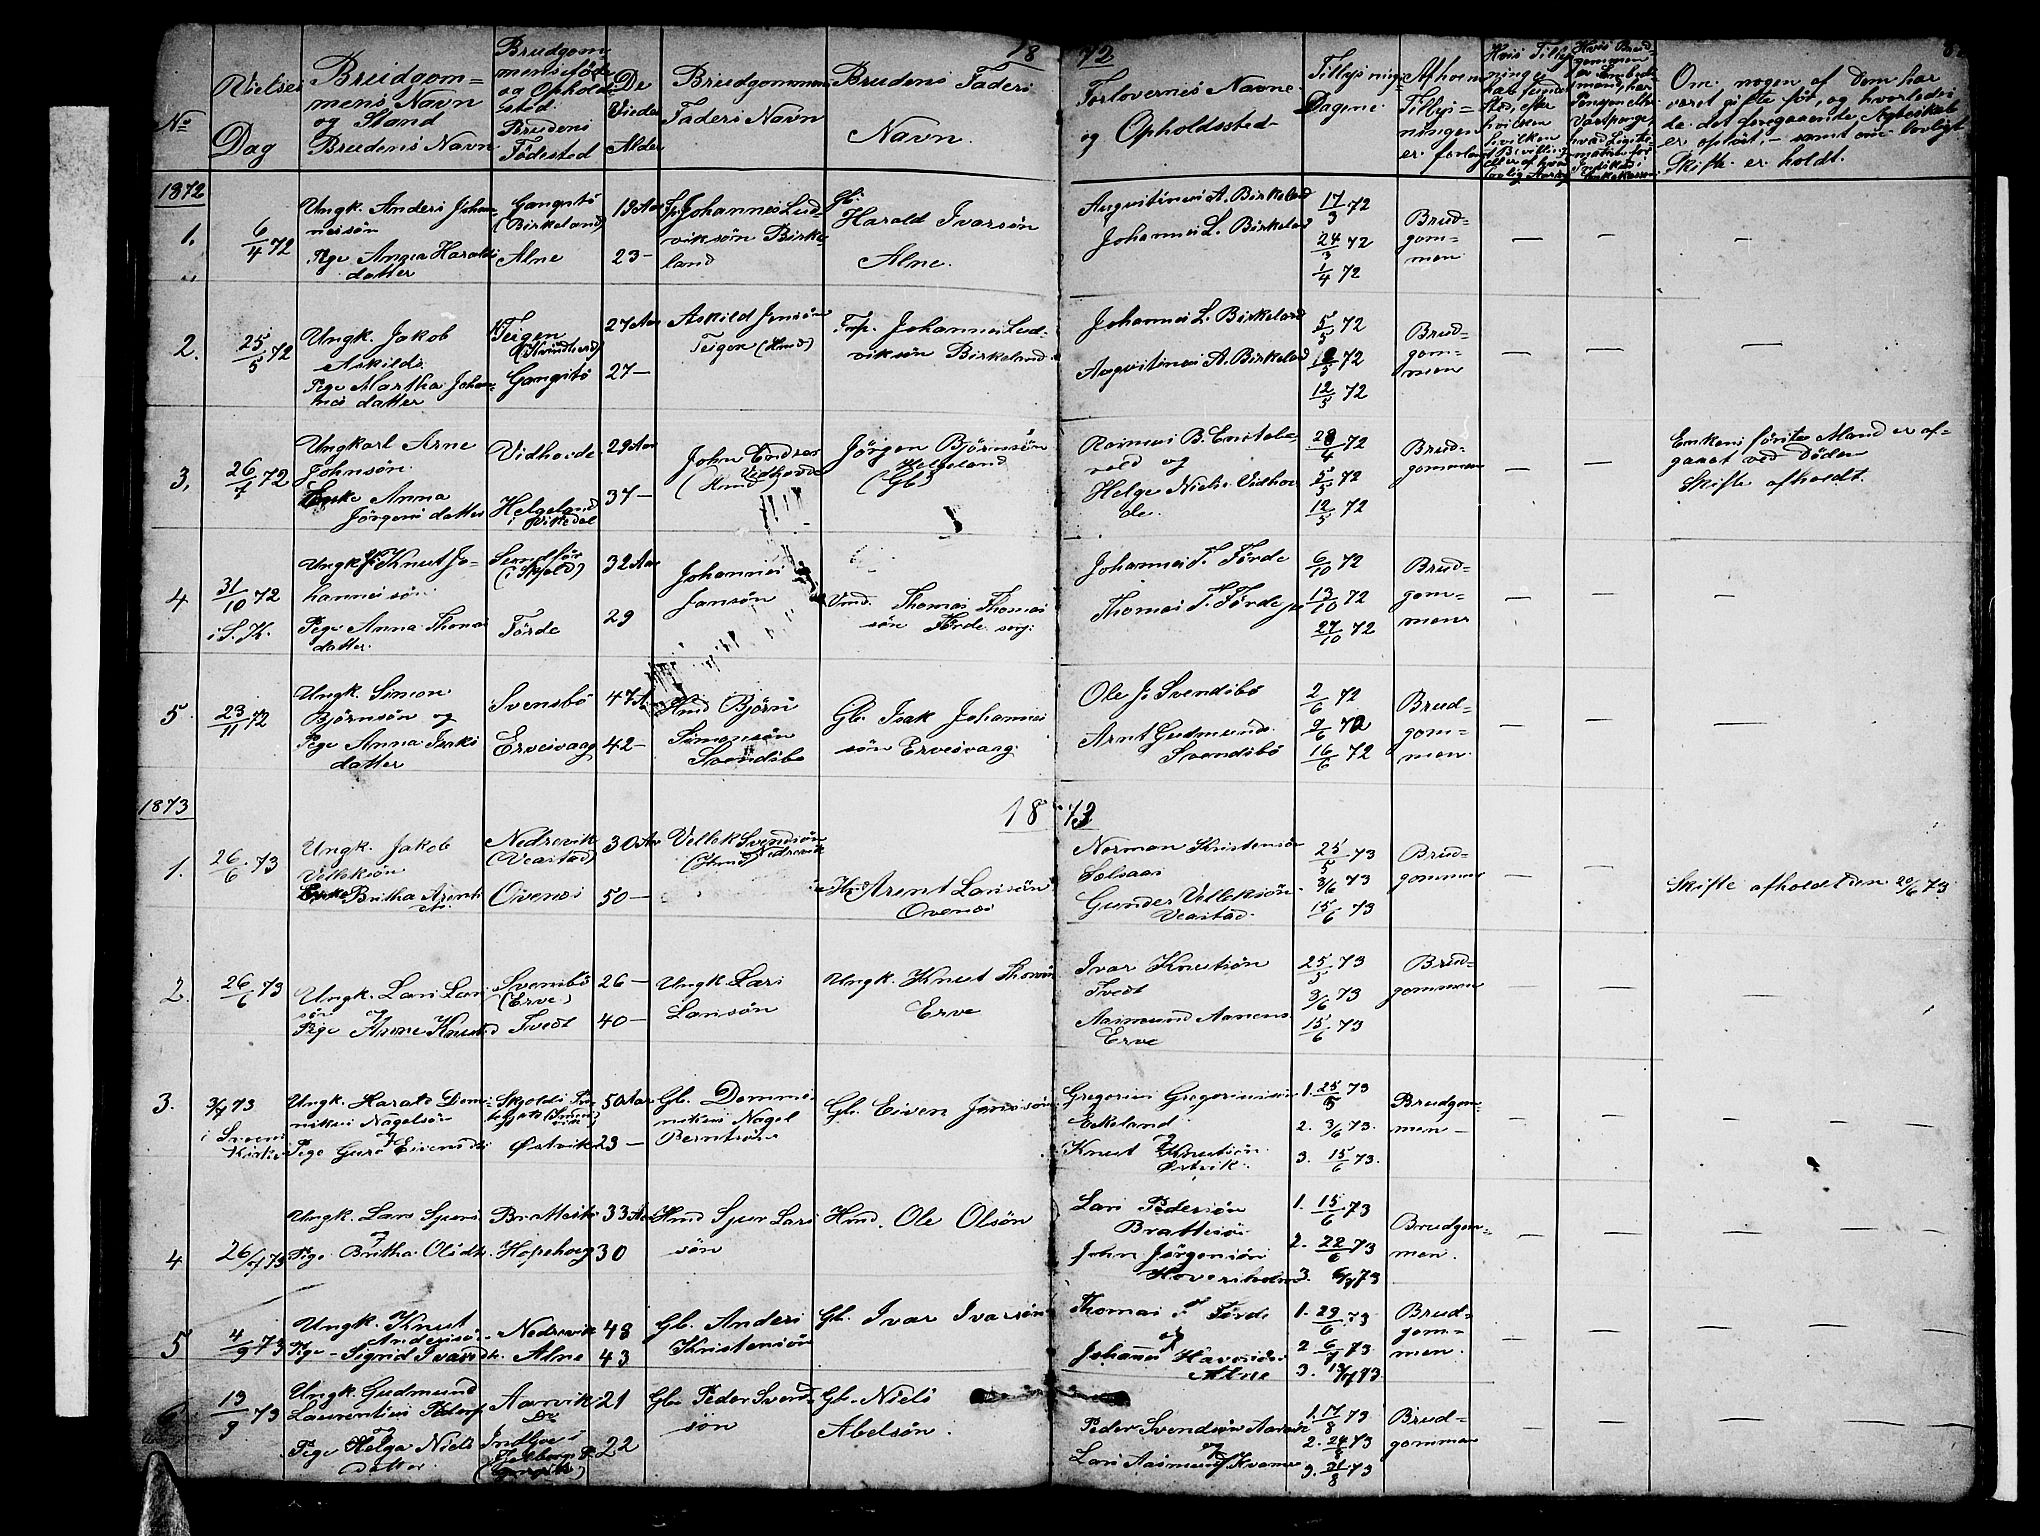 18 72
No
Vielses
Dag
Brudgom=
mens Navn
og Stand
Brudens Navn
Brudgom
mens föde
og Ophold
sted
Brudens
Födested
De
Viedes
Alder
Brudgommens
Faders Navn
Brudens Faders
Navn.
Forlovernes Navne
og Opholdssted
Tillysnings
Dagene
Af hvem
Tillys=
ningen
er forlangt
Om nogen af dem har
været gifte för, og hvorledes
de det foregaaende Ægteskab
er oplöst, - samt om lovligt
Skifte er holdt.
1872
1.
6/4 72
Ungk. Anders Johan-
nessön
Pige Anna Haralds
datter
Gangstö
(Birkeland)
Alne
19 Aar
23 -
Johannes Lud-
viksön Birke
land
Gb.
Harald Ivarsön
Alne.
Augustinus A. Birkeland
Johannes L. Birkeland
17/3 72
24/3 72
1/4 72
Brud=
gom=
men
— — —
2.
25/5 72
Ungk. Jakob
Askilds.
Pige Martha Johan-
nes datter
Teigen
(Kvindherd)
Gangstö
27 Aar
27 -
Askild Jensön
Teigen (Hmd)
Johannes Lud-
viksön Birkeland
Johannes L. Birkeland
Augustinus A. Birkeland
5/5 72
/5 72
12/5 72
Brud=
gom=
men
— — —
3,
26/7 72
Ungkarl Arne
Johnsön
Enke Anna
Jörgens datter
Vidhovde
Helgeland
i Vikedal
29 Aar
37 -
John Endres
Vidhovde
(Hmd
Jörgen Björnsön
Helgeland
(Gb)
Rasmus B. Enstabe-
vold og
Helge Niels. Vidhov
de.
28/4 72
5/5 72
12/5 72
Brud=
gommen
— —
Enkens förste Mand er af=
gaaet ved Döden
Skifte afholdt.
4
31/10 72
i S. K.
Ungk. Knut Jo=
hannessön
Pige Anna Thomas
datter.
(i Skjold)
Förde
32 Aar
29
Johannes
Jansön
Thomas Thomas
sön Förde
Johannes T. Förde
Thomas T. Förde
6/10 72
13/10 72
27/10 72
Brud=
gom=
men
— — —
5
23/11 72
Ungk. Simon
Björnsön og
Pige Anna Isaks
datter
Svensbö
Ervesvaag
47 A
42 -
Hmd Björn
Simonsön
Svendsbö
Gb. Isak Johannes
sön Ervesvaag.
Ole J. Svendsbö
Arnt Gudmunds.
Svendsbö
2/6 72
9/6 72
16/6 72
Brud=
gom=
men.
— — —
1873
18 73
1.
26/6 73
Ungk. Jakob
Velleksön
Enke Britha Arents
dtr.
Nedrevik
(Veastad)
Ovenes
30 Aar
50 -
Vellek Svendsön
(Hmd) Nedrevik
Hmd Arent Larsön
Ovenes
Norman Kristensön
Gunder Velleksön
Veastad.
25/5 73
3/6 73
15/6 73
Brud=
gommen
— —
Skifte afholdt den 20/6 73
2.
26/6 73
Ungk. Lars Lar-
sön
Pige Anne Knutsd
Svensbö
(Erve)
Tvedt
26 -
40 -
Ungk. Lars
Larsön
Ungk. Knut Thomas
Erve
Ivar Knutsön
Tvedt
Aasmund Aanens.
Erve
25/5 73
3/6 73
15/6 73
Brud=
gommen
— —
3.
3/7 73
i Sven
Kirke
Ungk. Harald Dom-
nikus Nagelsön
Pige Guro Eivensdtr
Østvik
50 Aar
23 -
Gb. Domme
nikus Nagel
Berntsön
Gb. Eiven Jansön
Gregorius Gregoriussön
Eekeland
Knut Knutsön
Østvik.
1. 25/5 73
2. 3/6 73.
3. 15/6 73.
Brudgom-
men —
— — — —
4
26/7 73
Ungk. Lars Spers.
og
Pige Britha Olsdtr.
Brattestö
Hopehoug
33 Aar
30
Hmd Sper Lars
sön
Hmd. Ole Olsön
Lars Pedersön
Brattesö
John Jörgensön
Hoversholm
1. 15/6 73
2. 22/6 73
3. 6/7 73
Brudgom=
men.
— — — —
5
4/9 73
Ungk. Knut
Andersön
Pige Sigrid Ivarsdtr.
Nedrevik
Alne
48
43
Gb. Anders
Kristensön
Gb. Ivar Ivarsön
Thomas T Förde
og
Johannes Havnsön
Alne
1. 29/6 73
2. 6/7 73
3. 13/7 73
Brud=
gom=
men.
— — — —
13/9 73
Ungk. Gudmund
Laurentius Peders
og
Pige Helga Niels
datter.
Aarvik
21
22
Gb. Peder Svend
sön
Gb. Niels
Abelsön.
Peder Svendsön Aarvik
og
Lars Aasmunds Kvame
1. 17/8 73
2. 24/8 73
3. 31/8 73
Brud=
gommen
— — — —